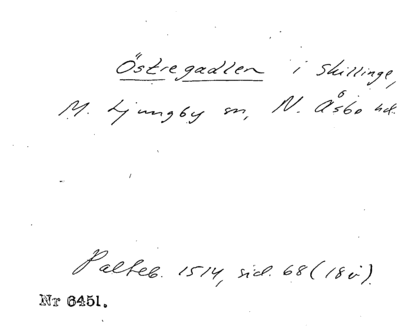 Östregadlen i Skillinge,
M. Ljungby sn, N. Åsbo hd.
Palteb. 1514, sid. 68 (18 v).
Nr 6451.